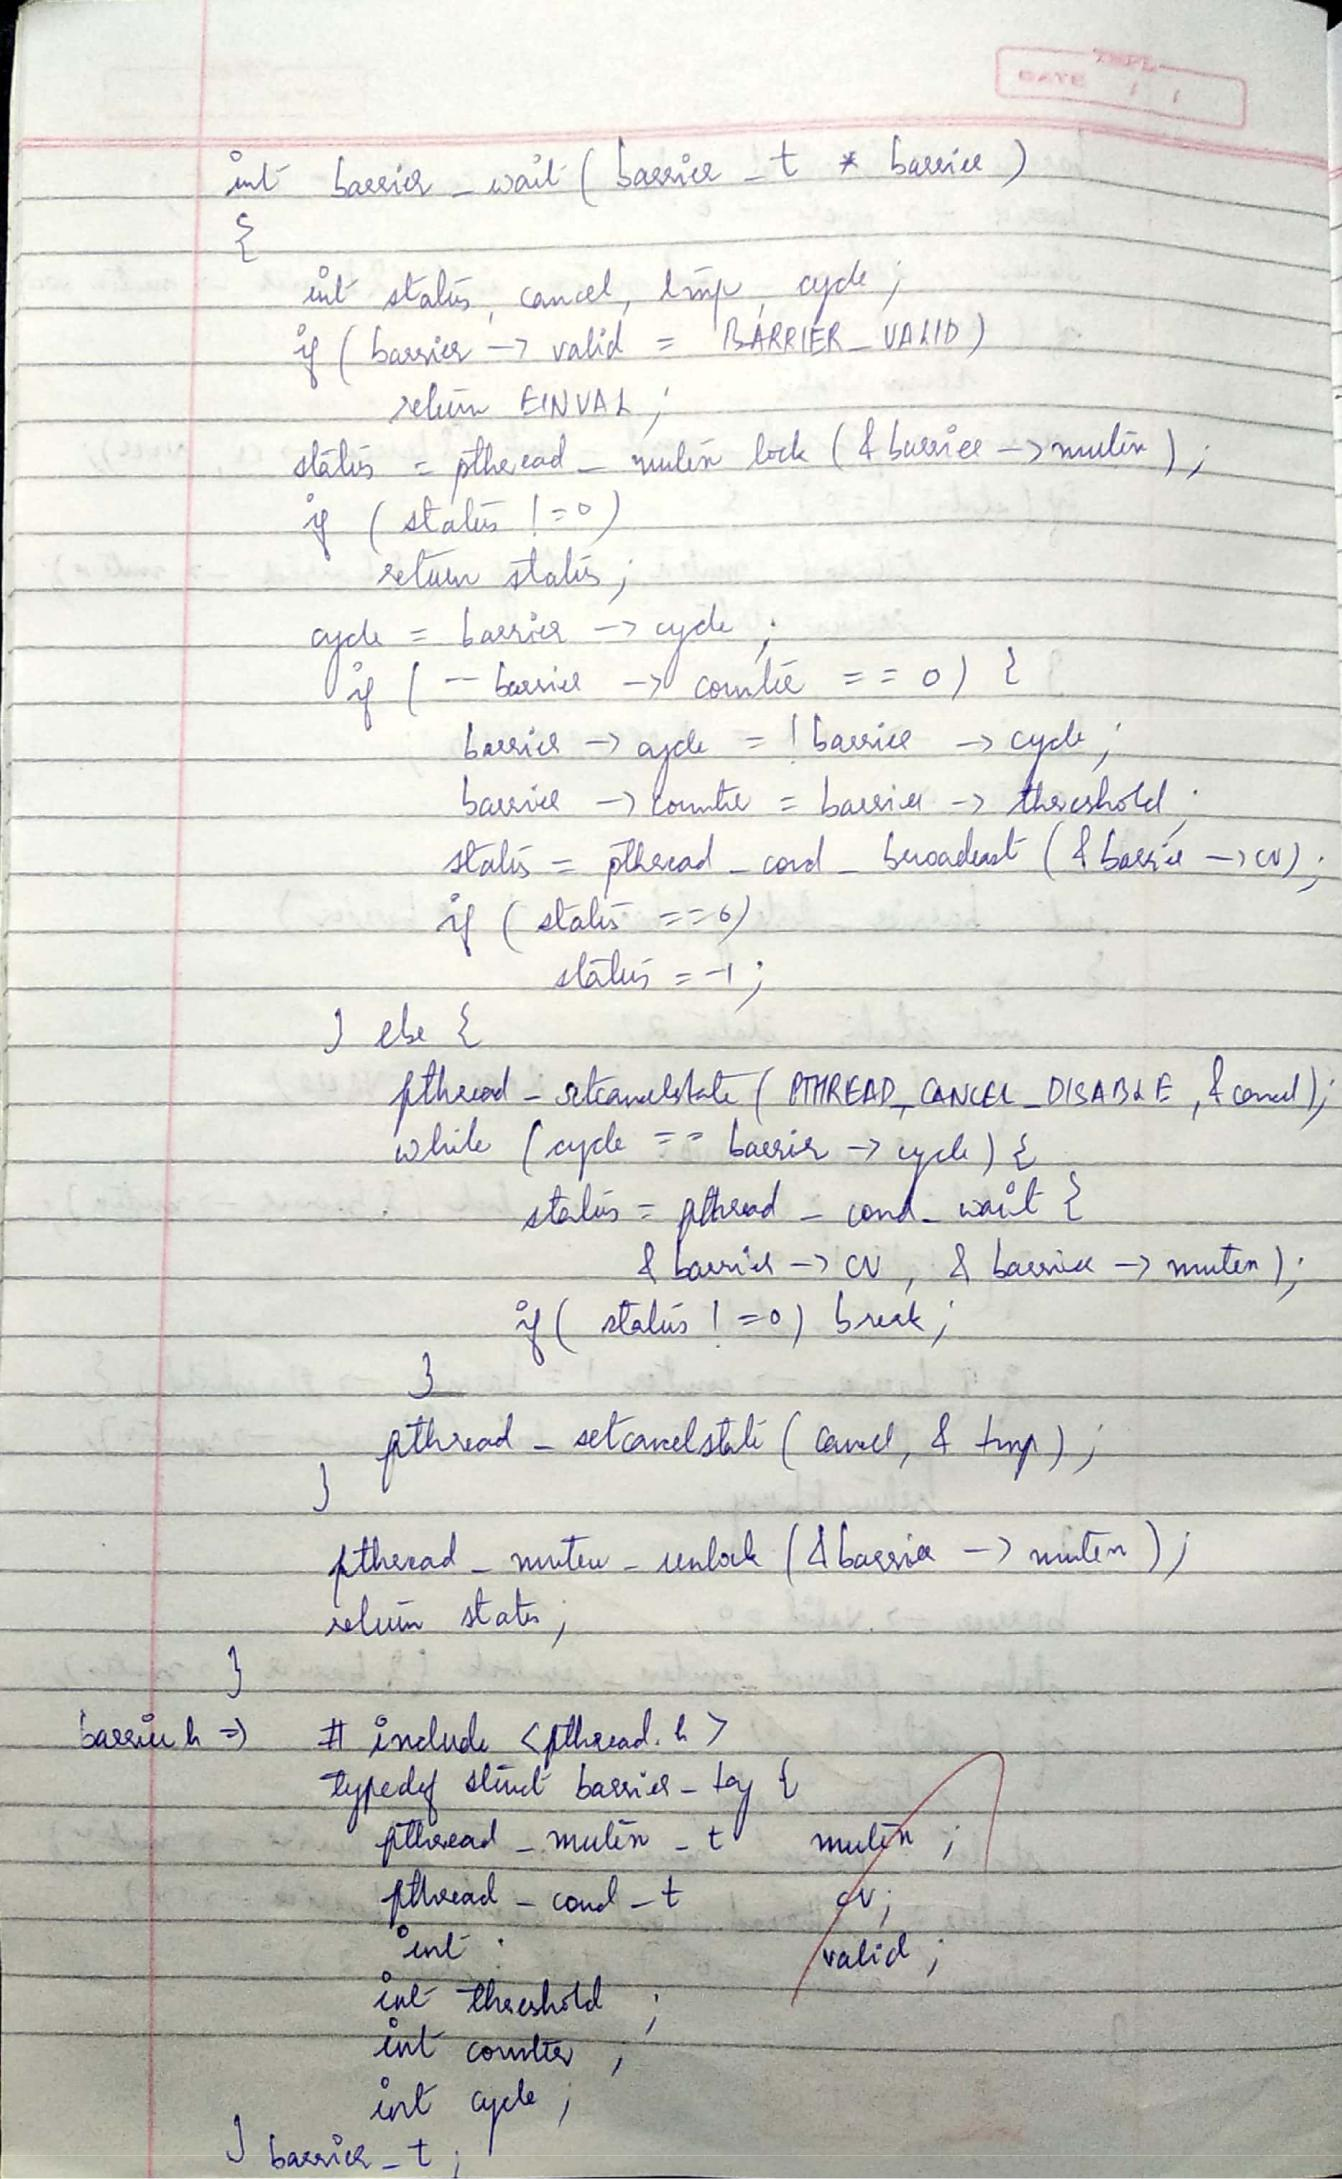 TMPL
DATE / /
int barrier_wait ( barrier_t * barrier )
{
int status, cancel, tmp, cycle ;
if ( barrier -> valid = BARRIER_VALID )
return EINVAL ;
status = pthread_mutex lock ( & barrier -> mutex ) ;
if ( status != 0 )
return status ;
cycle = barrier -> cycle ;
if ( -- barrier -> counter == 0 ) {
barrier -> cycle = ! barrier -> cycle ;
barrier -> counter = barrier -> threshold ;
status = pthread_cond_broadcast ( & barrier -> cv ) ;
if ( status == 0 )
status = -1 ;
} else {
pthread_setcancelstate ( PTHREAD_CANCEL_DISABLE , & cancel ) ;
while ( cycle == barrier -> cycle ) {
status = pthread_cond_wait {
& barrier -> cv , & barrier -> mutex ) ;
if ( status != 0 ) break ;
}
pthread_setcancelstate ( cancel, & tmp ) ;
}
pthread_mutex_unlock ( & barrier -> mutex ) ;
return status ;
}
barrier.h => # include <pthread.h>
typedef struct barrier_tag {
pthread_mutex_t mutex ;
pthread_cond_t cv ;
int valid ;
int threshold ;
int counter ;
int cycle ;
} barrier_t ;